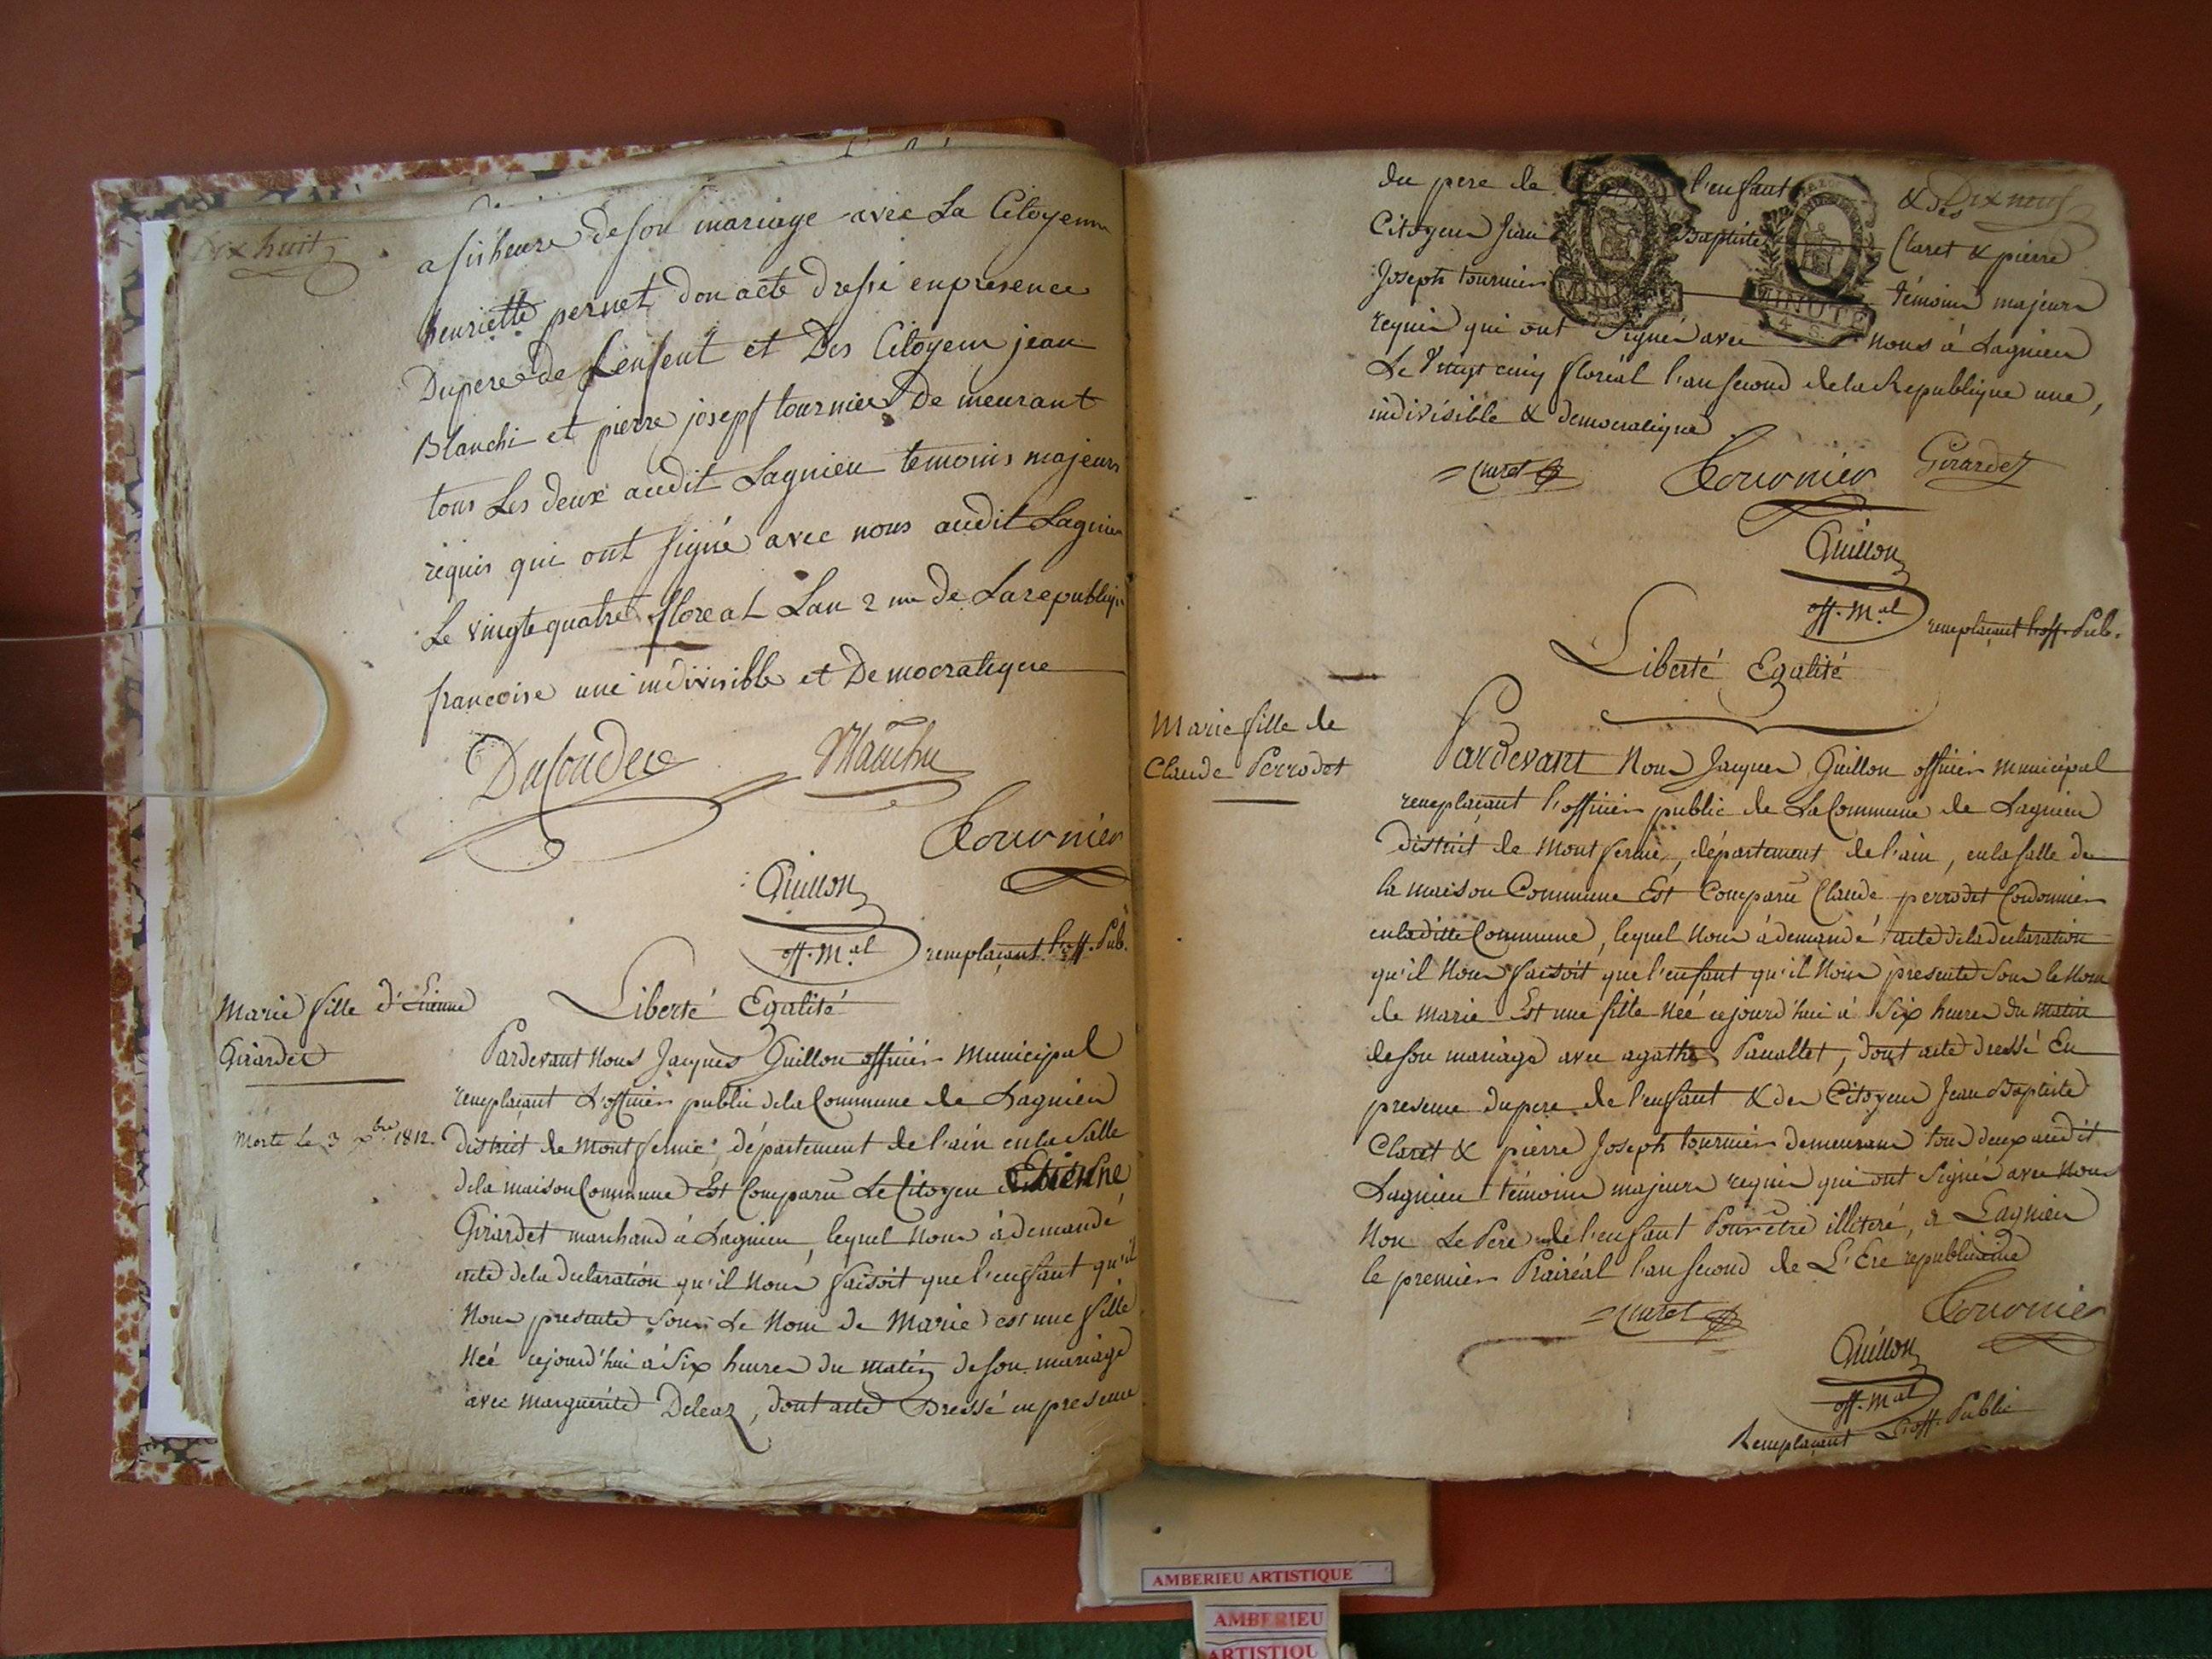 Dix huit
a six heure de son mariage avec La Citoyenne
henriette pernet don acte dressé en presence
Du pere de L'enfent et Des Citoyens jean
Blanchi et pierre josepf tournier De meurant
tous Les deux audit Lagnieu temoins majeurs
requis qui ont signé avec nous audit Lagnieu
Le vingte quatre floreal Lan 2 me de La republique
francoise une indivisible et Democratique
Tournier
Guillon
off. M.al remplaçant l'off. Pub.
Marie fille d'Etienne
Girardet
Morte Le 3 Xbre 1812.
Liberté Egalité
Pardevant Nous Jacques Guillon officier Municipal
remplaçant L'officier public de la Commune de Lagnieu
district de Montferme, département de l'ain en la Salle
de la maison Commune Est Comparu Le Citoyen Etienne
Girardet marchand à Lagnieu, lequel Nous à demandé
acte de la declaration qu'il Nous faisoit que l'enfant qu'il
Nous presente sous Le Nom de Marie est une fille
Née cejourd'hui à Six heures du matin de son mariage
avec Marguerite Deleaz, dont acte Dressé en presence
Dix neuf
du pere de l'enfant & des
Citoyens Jean Baptiste Claret & pierre
Joseph tournier témoins majeurs
requis qui ont Signé avec nous à Lagnieu
Le Vingt cinq floréal l'an second de la Republique une,
indivisible & democratique
Claret Tournier Girardet
Guillon
off. M.al remplaçant l'off. Pub.
Liberté Egalité
Marie fille de
Claude Perrodet
Pardevant Nous Jacques Guillon officier Municipal
remplaçant l'officier public de La Commune de Lagnieu
district de Montferme, département de l'ain, en la salle de
la maison Commune Est Comparu Claude perrodet Cordonnier
en la ditte Commune, lequel Nous à demandé acte de la declaration
qu'il Nous faisoit que l'enfant qu'il Nous presente sous le Nom
de Marie Est une fille Née cejourd'hui à Six heures du matin
de son mariage avec agathe, dont acte dressé En
presence du pere de l'enfant & des Citoyens Jean Baptiste
Claret & pierre Joseph tournier demeurans tous deux audit
Lagnieu témoins majeurs requis qui ont Signé avec Nous
Non Le Pere de l'enfant Pour être illiteré, a Lagnieu
le premier Prairéal l'an second de L'Ere republicaine
Claret Tournier
Guillon
off. M.al
Remplaçant L'off. Public
MINUTE
MINUTE
4 S
AMBERIEU ARTISTIQUE
AMBERIEU
ARTISTIQU